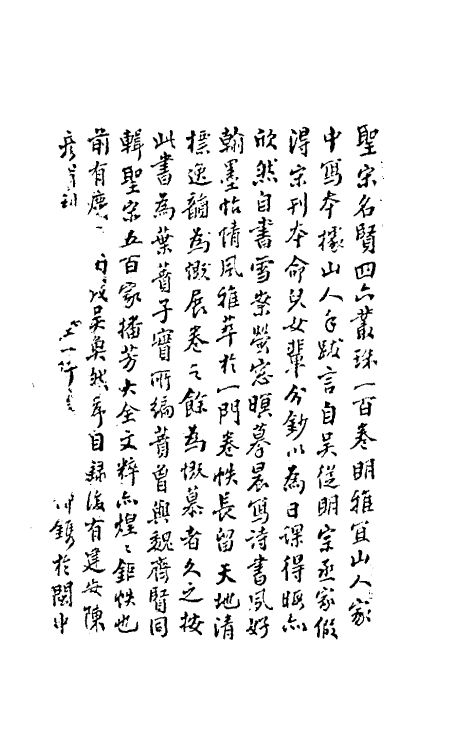 聖宋名賢四六叢珠一百卷明雅宜山人家
中寫本據山人手跋言自吳從明宗丞家假
得宋刊本命兒女輩分鈔以為日課得暇亦
欣然自書雪案螢窓暝摹晨寫詩書夙好
翰墨怡情風雅萃於一門卷帙長留天地清
標逸韻為慨展卷之餘為慨慕者久之按
此書為葉蕡子實所編蕡曾與魏齊賢同
輯聖宋五百家播芳大全文粹亦煌〻鉅帙也
前有 吳奐然序目錄後有建安陳
彥甫刊 一行 鐫於閩中